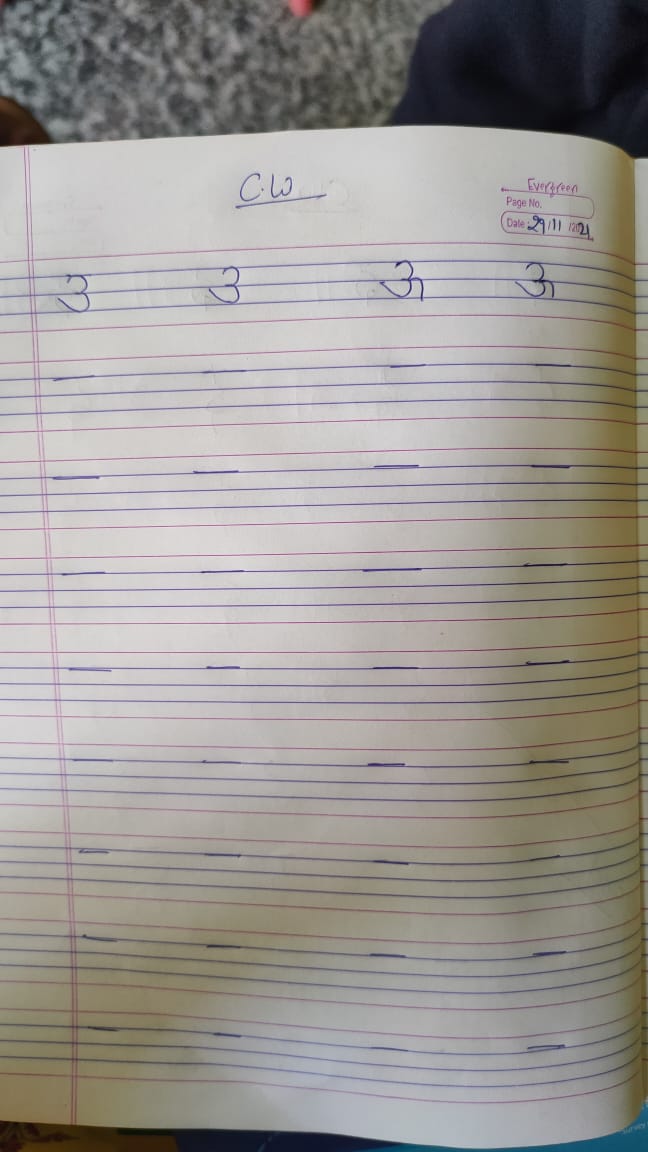 C.W
Evergreen
Page No.
Date: 29/11/2021
3 3